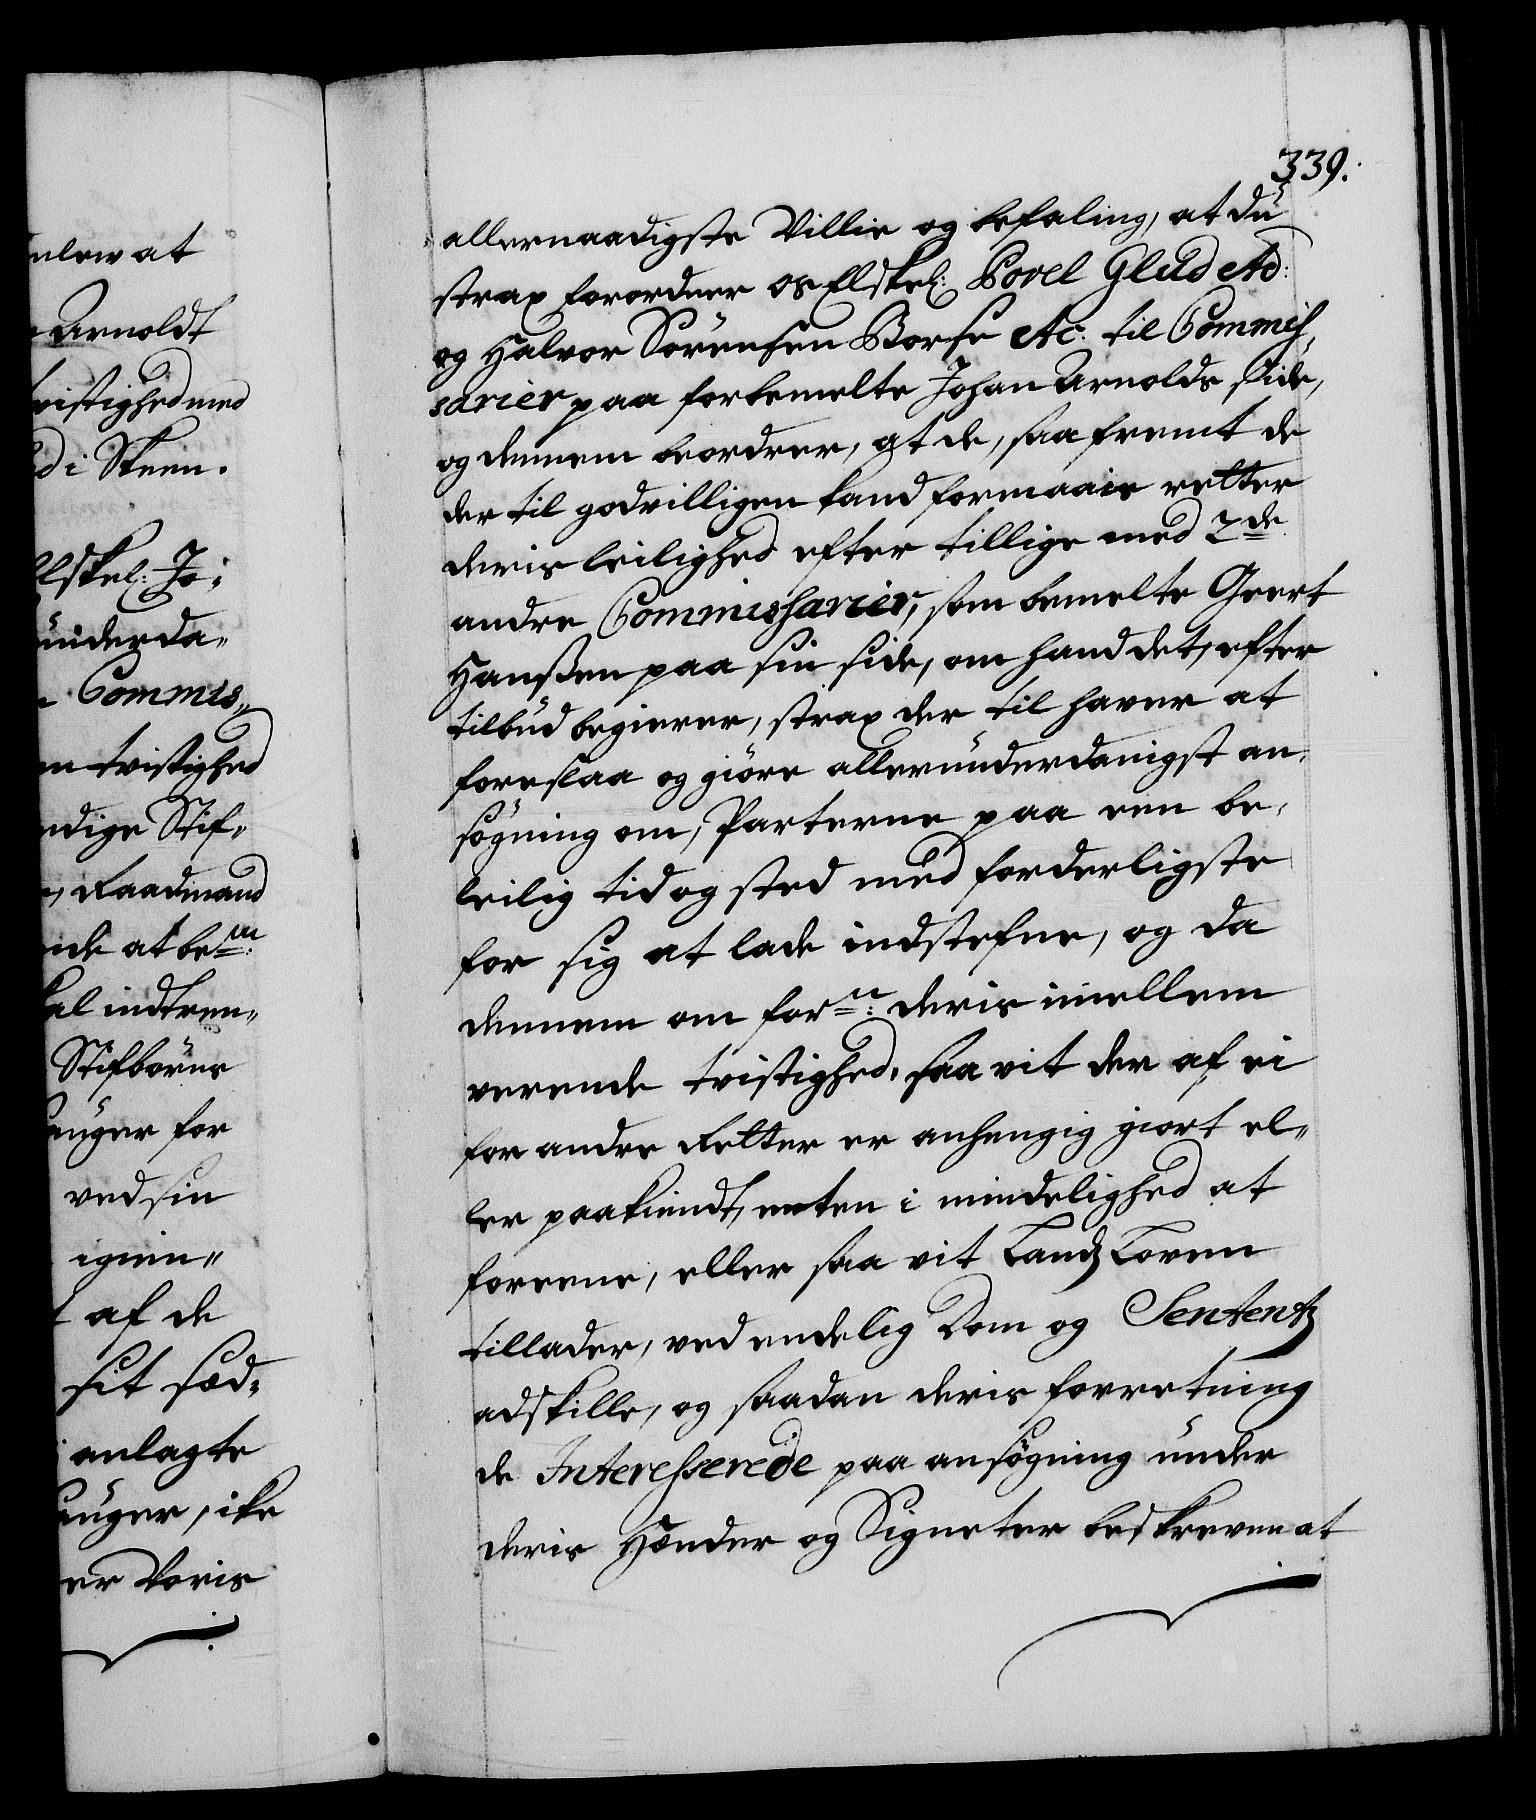 nlew at
Arnoldt
tvistighed med
di Skeen.
Elskel: Jo:
underda-
Commis-
en tvistighed
edige Stif-
, Raadmand
nde at be<sup>m</sup>:
kal indtren-
Stifbörns
anger for
ved sin
igien-
t af de
sit sød-
anlagte
anger, ike
er Voris
339.
allernaadigste Villie og befaling, at du
strax forordner os Elskel: Povel Glud Ad:
og Halvor Sörensen Borse Ac: til Commis-
sarier paa forbemelte Johan Arnolds side,
og dennem beordrer, at de, saa fremt de
der til godvilligen kand formaais retter
deris leilighed efter tillige med 2de
andre Commissarier, som bemelte Geert
Hanssen paa sin side, om hand det, efter
tilbud begierer, strax der til haver at
foreslaa og giöre allerunderdanigst an-
sögning om, Parterne paa een be-
leilig tid og sted med forderligste
for sig at lade indstefne, og da
dennem om forn: deris imellem
verende tvistighed, saa vit der af ei
for andre Retter er anhengig giort el-
ler paakiendt, enten i mindelighed at
foreene, eller saa vit Landz Loven
tillader, ved endelig Dom og Sententz
adskille, og saadan deris forretning
de Interesserede paa ansögning under
deris Hænder og Signeter beskreven at